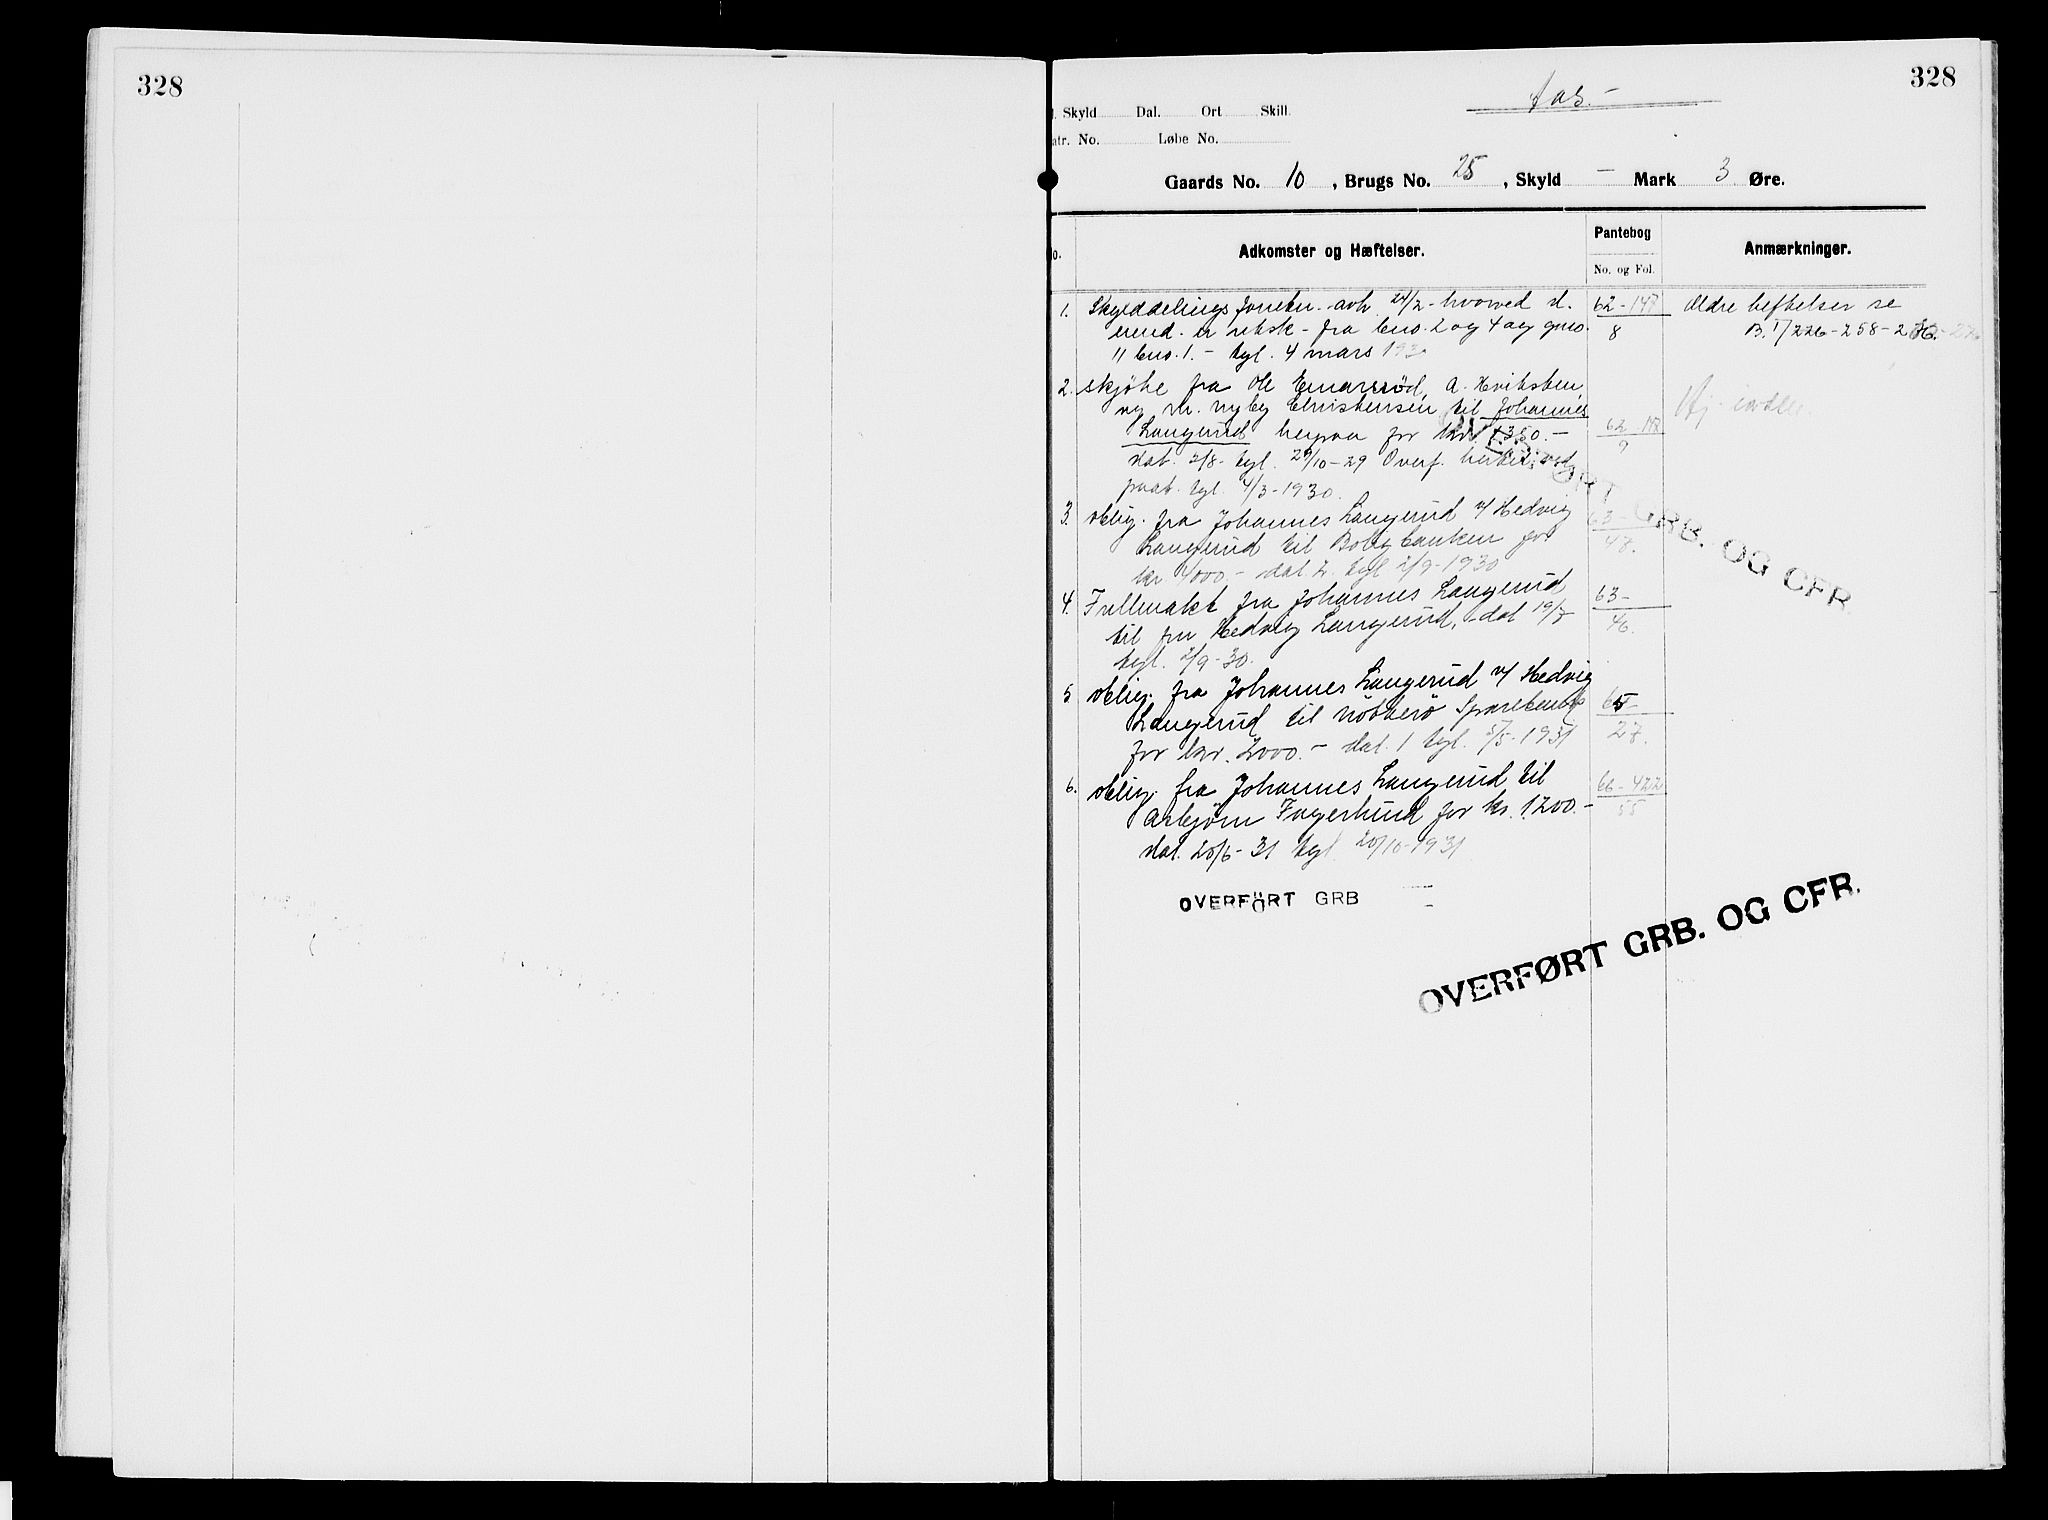 328
328
Aas.
Skyld Dal. Ort Skill.
atr. No. Løbe No.
Gaards No. 10, Brugs No. 25, Skyld — Mark 3 Øre.
Pantebog
Adkomster og Hæftelser. Anmærkninger.
No. og Fol.
1. Skylddelings avh 24/2 - hvorved d. 62-147 Ældre heftelser se
eiend. er utsk. fra bno. 2 og 4 og gno. 8 B. I/226-258-
11 bno. 1. - tgl. 4 mars 193
2. skjöte fra Ole A. Hvitsten
og M. Nyby Christensen til Johannes
Langerud herpaa for kr. 1350.- 62-147
dat. 2/8 tgl. 29/10-29 Overf. 9
paat. tgl. 4/3-1930.
3. oblig. fra Johannes Langerud v/ Hedvig 63-
Langerud til Boligbanken for 48.
kr 4000.- dat. 2. tgl 2/9-1930
4. Fullmakt fra Johannes Langerud 63-
til fru Hedvig Langerud, dat 19/7 46.
tgl. 2/9-30.
5 oblig. fra Johannes Langerud v/ Hedvig
Langerud til Nötterö Sparebank 65-
for kr. 2000.- dat. 1 tgl. 5/5-1931 27.
6. oblig. fra Johannes Langerud til 66-422
Asbjörn Fagerlund for kr. 1200.- 55
dat. 20/6-31 tgl. 20/10-1931
GRB. OG CFR.
OVERFÖRT GRB
OVERFØRT GRB. OG CFR.